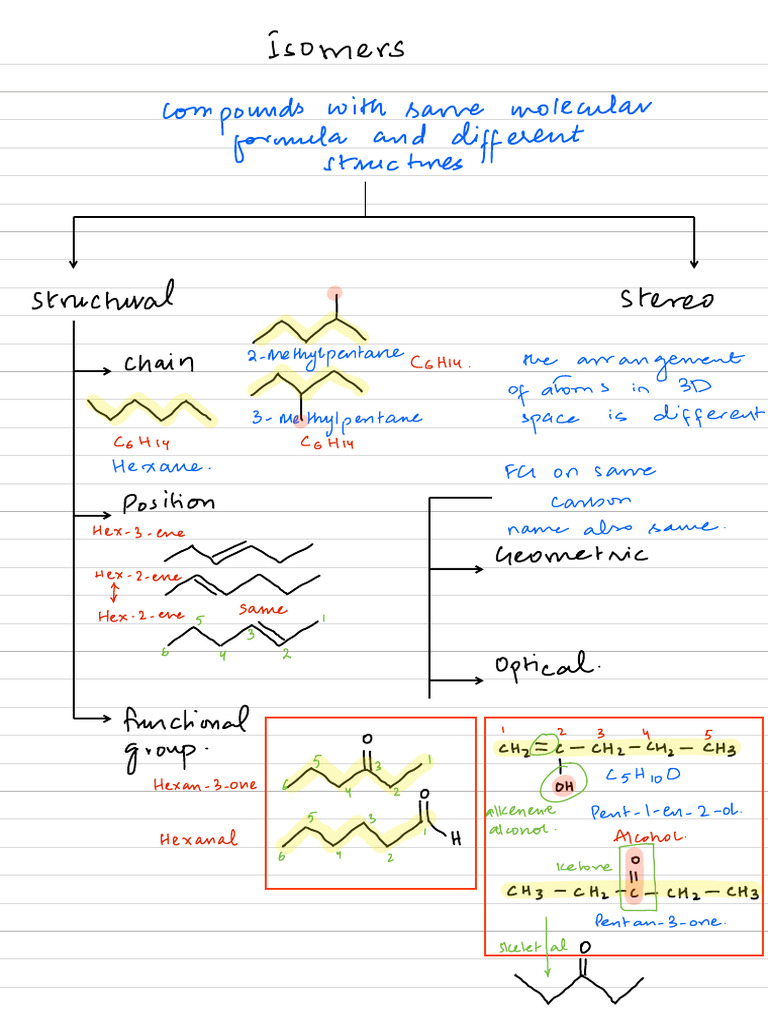 Isomers
compounds with same molecular
formula and different
structures
Structural
Stereo
chain
2-methylpentane
C6H14.
3-methylpentane
C6H14
C6H14
Hexane.
the arrangement
of atoms in 3D
space is different
FG on same
carbon
name also same.
Position
Hex-3-ene
Hex-2-ene
same
Hex-2-ene
5
1
3
6
4
2
Geometric
Optical.
functional
group.
O
Hexan-3-one
5
3
1
6
4
2
O
Hexanal
5
3
1
H
6
4
2
1 2 3 4 5
CH2 = C - CH2 - CH2 - CH3
OH
C5H10O
alkenene
alcohol.
Pent-1-en-2-ol.
Alcohol.
Ketone
O
CH3 - CH2 - C - CH2 - CH3
Pentan-3-one.
skeletal
O